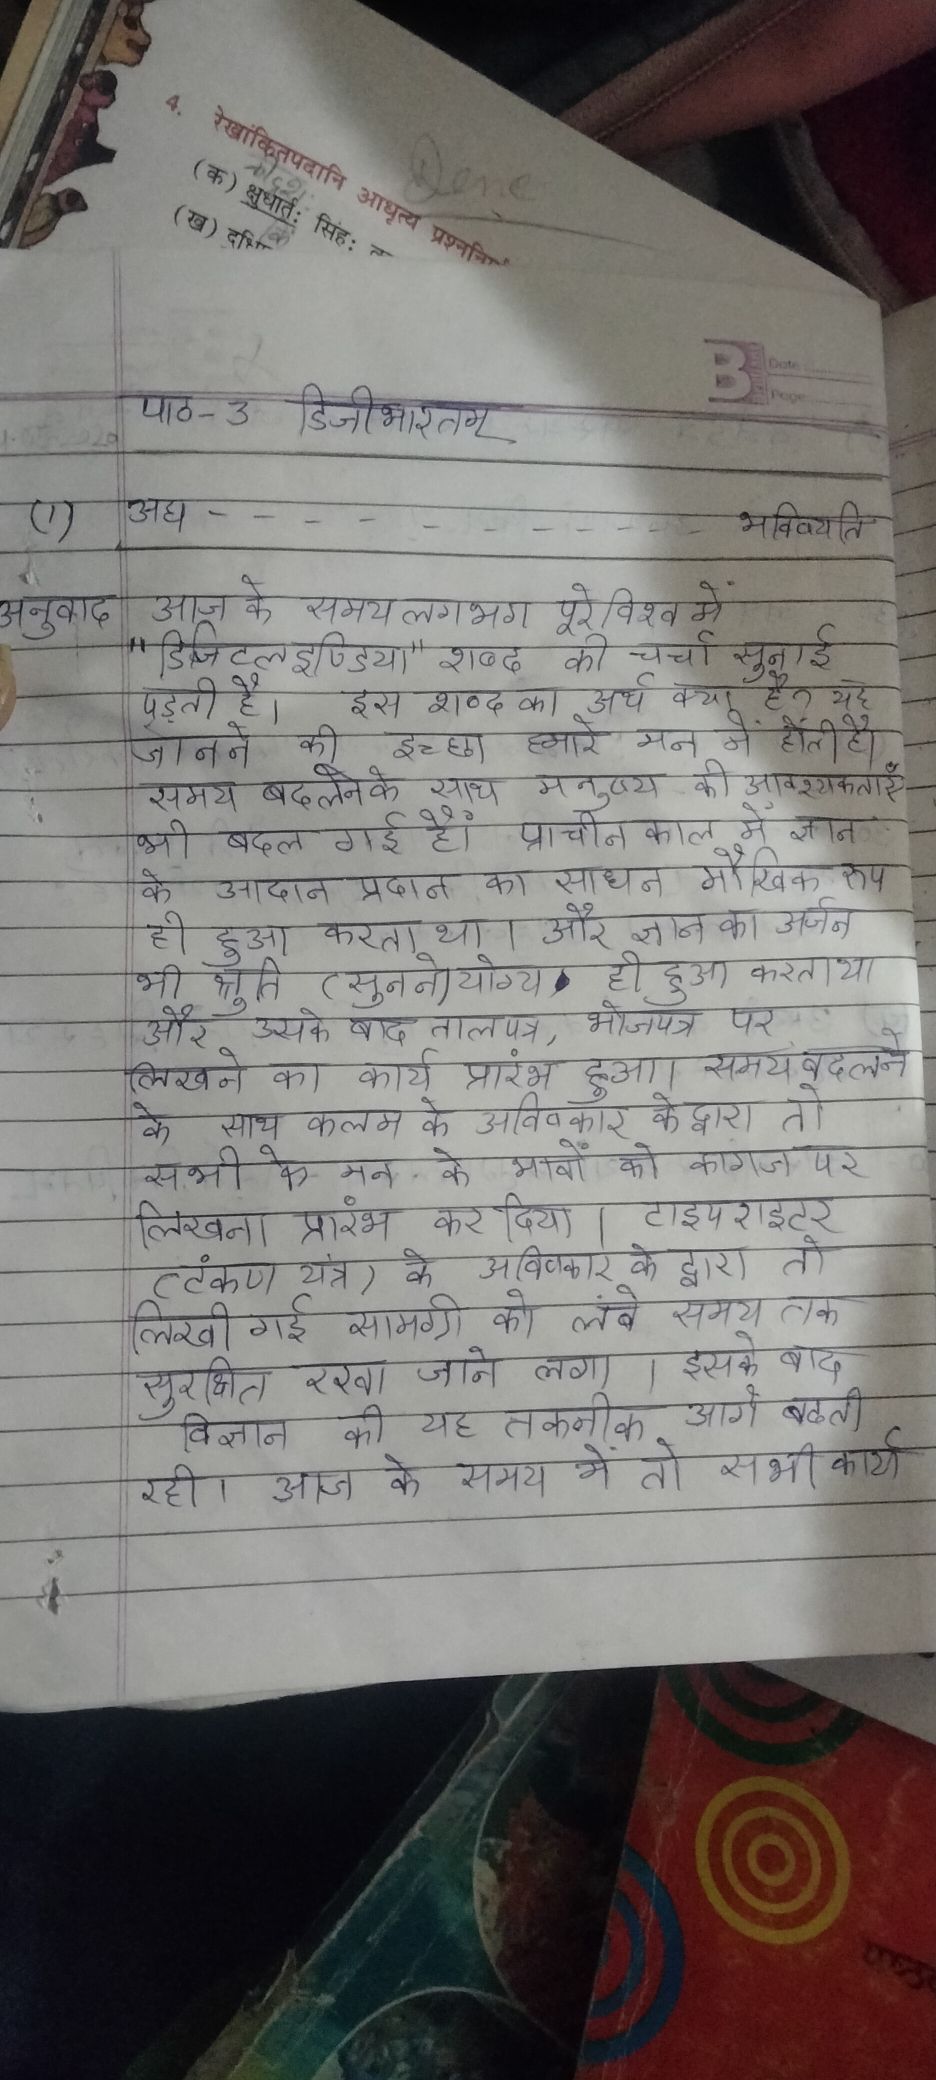 4. रेखांकितपदानि आधृत्य प्रश्ननि
(क) क्षुधार्तः सिंहः
(ख)
Done
B Date
Page
पाठ-3 डिजीभारतम्
(1) अद्य - - - - - - - - - - - भविष्यति
अनुवाद आज के समय लगभग पूरे विश्व में
"डिजिटल इण्डिया" शब्द की चर्चा सुनाई
पड़ती है। इस शब्द का अर्थ क्या है? यह
जानने की इच्छा हमारे मन में होती है।
समय बदलने के साथ मनुष्य की आवश्यकताएँ
भी बदल गई हैं। प्राचीन काल में ज्ञान
के आदान प्रदान का साधन मौखिक रूप
ही हुआ करता था। और ज्ञान का अर्जन
भी श्रुति (सुनने) योग्य ही हुआ करता था
और उसके बाद तालपत्र, भोजपत्र पर
लिखने का कार्य प्रारंभ हुआ। समय बदलने
के साथ कलम के अविष्कार के द्वारा तो
सभी के मन के भावों को कागज पर
लिखना प्रारंभ कर दिया। टाइपराइटर
(टंकण यंत्र) के अविष्कार के द्वारा तो
लिखी गई सामग्री को लंबे समय तक
सुरक्षित रखा जाने लगा। इसके बाद
विज्ञान की यह तकनीक आगे बढती
रही। आज के समय में तो सभी कार्य